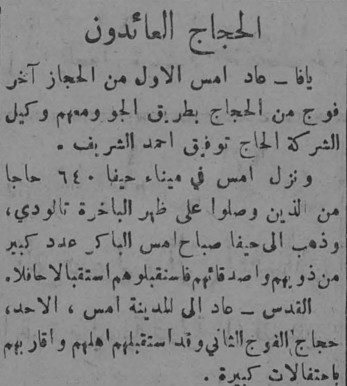 الحجاج العائدون
يافا ــ عاد امس الاول من الحجاز آخر
فوج من الحجاج بطريق الجو ومعهم وكيل
الشركة الحاج توفيق احمد الشريف .
ونزل امس في ميناء حيفا ٦٤٠ حاجا
من الذين وصلوا على ظهر الباخرة تالودي،
وذهب الى حيفا صباح امس الباكر عدد كبير
من ذويهم واصدقائهم فاستقبلوهم استقبالا حافلا.
القدس ــ عاد الى المدينة امس ، الاحد،
حجاج الفوج الثاني وقد استقبلهم اهلهم واقاربهم
باحتفالات كبيرة .